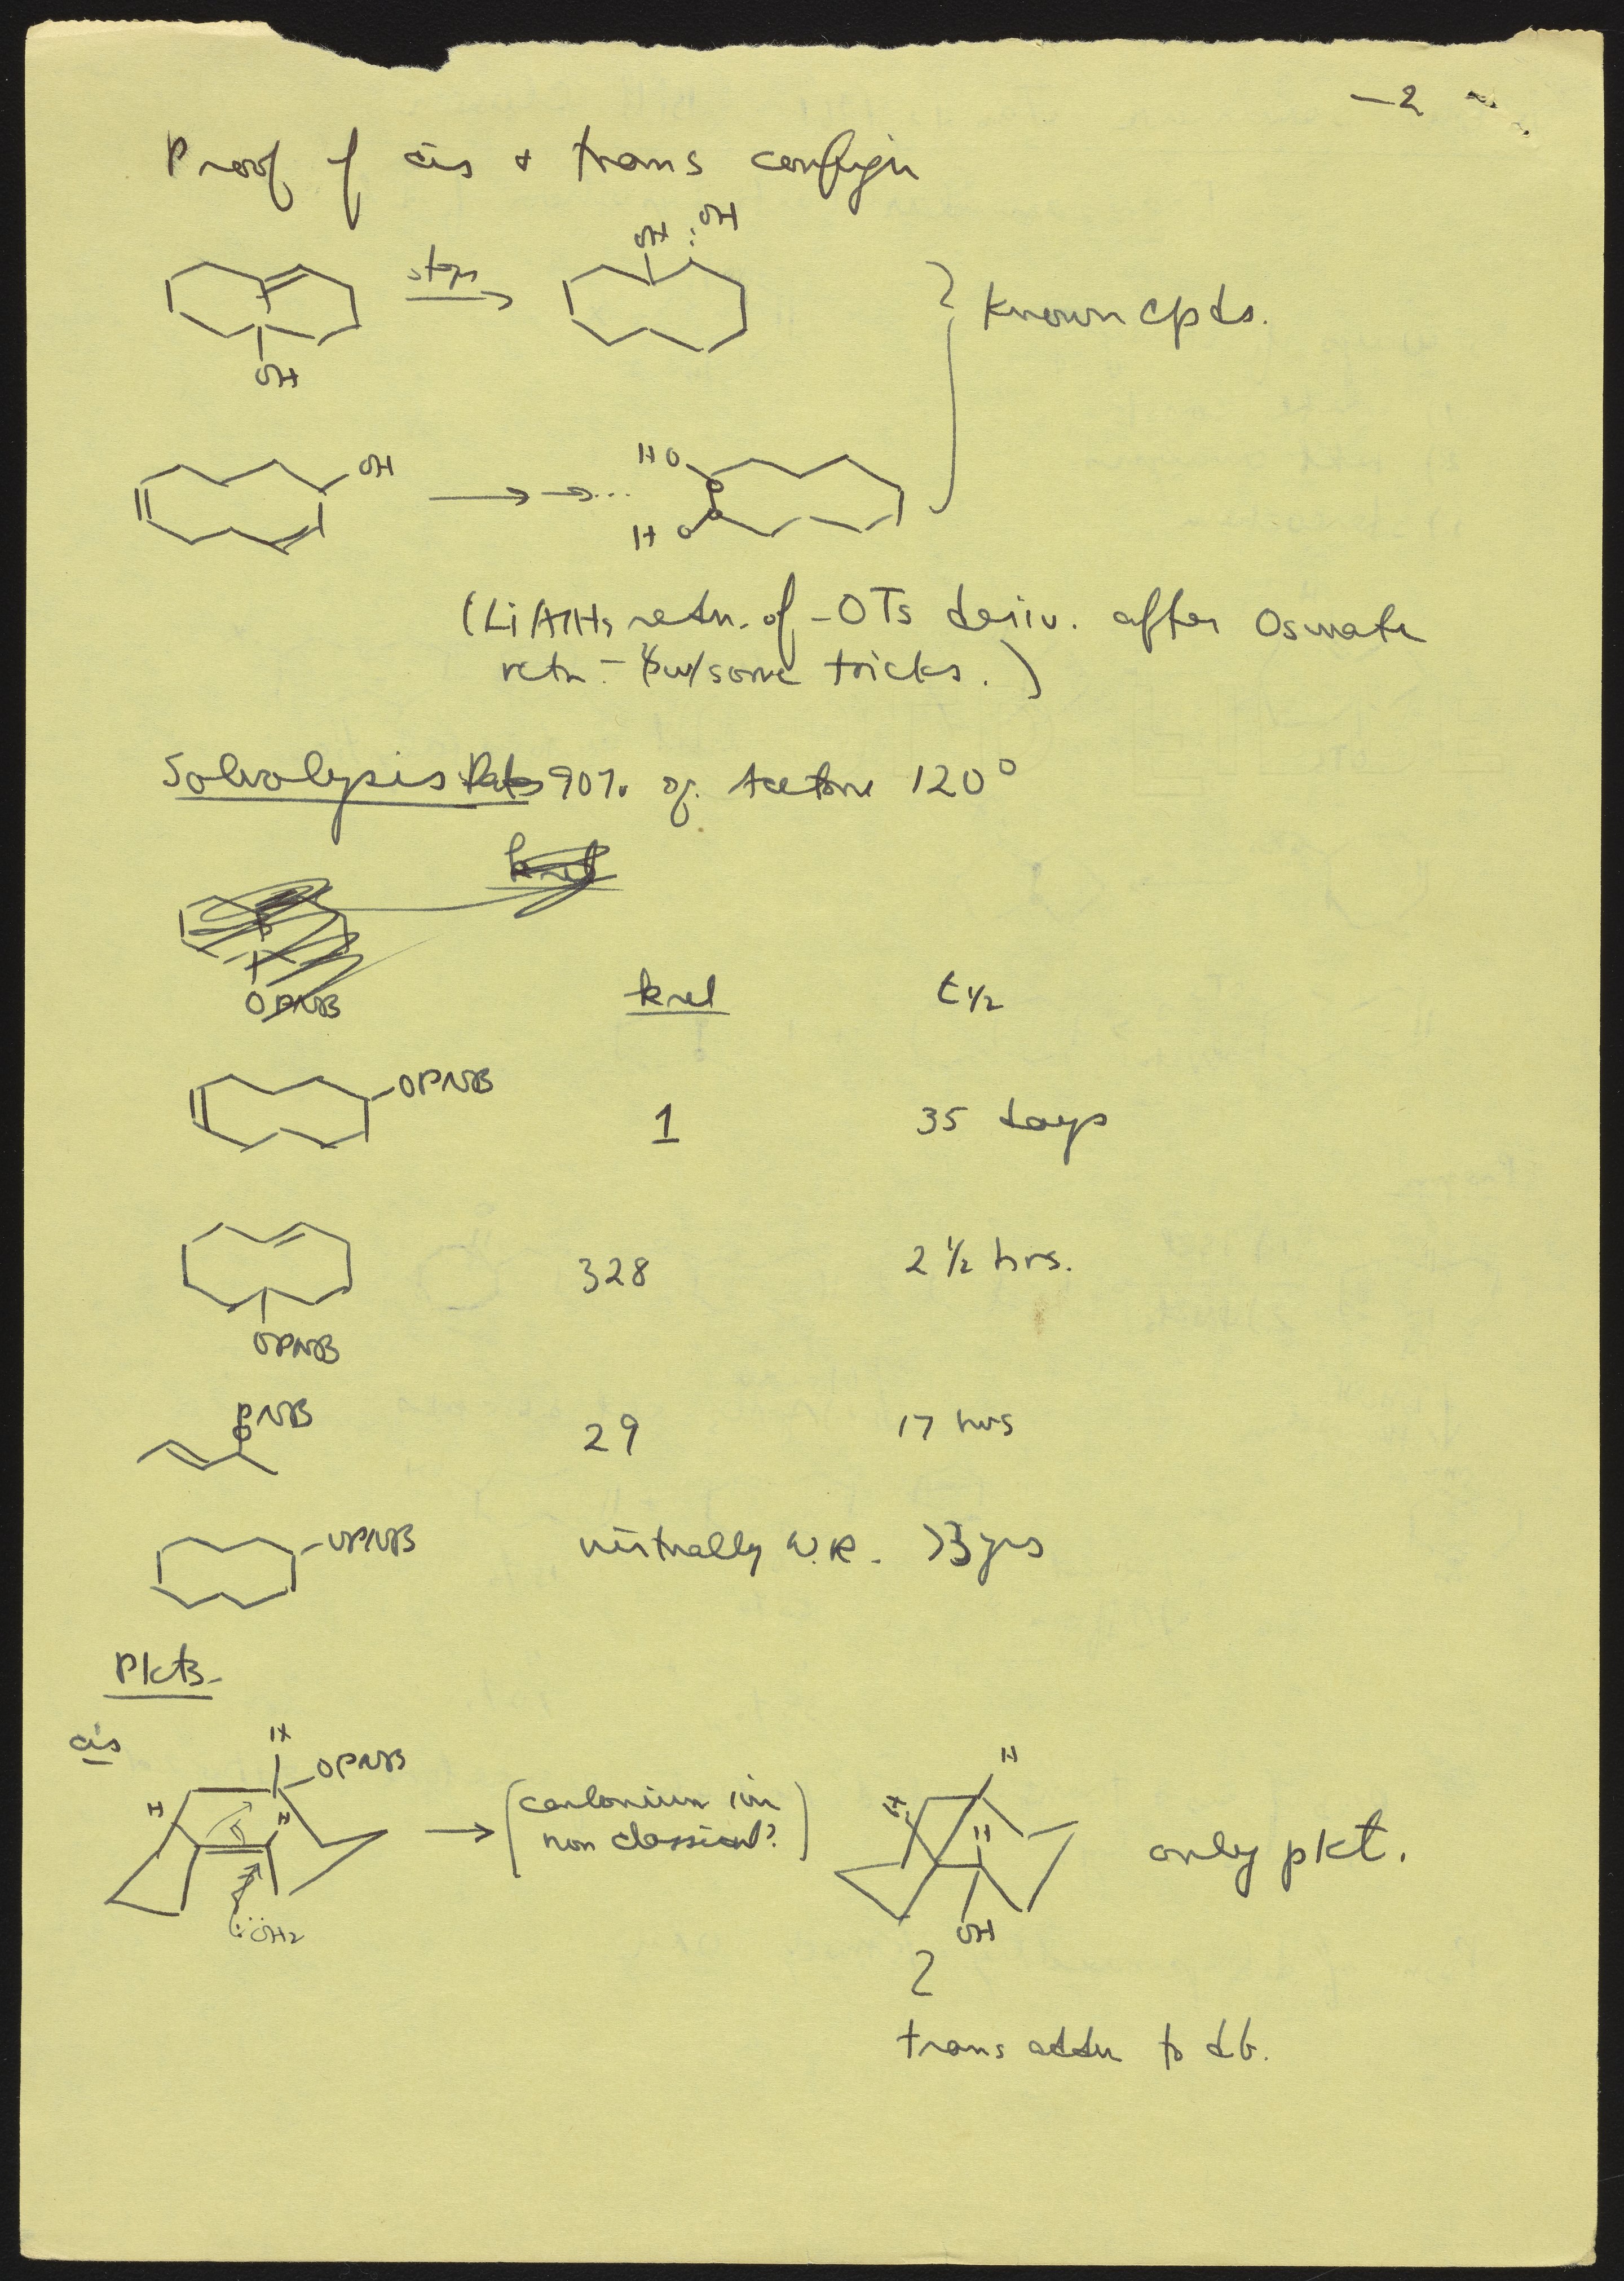 -2
Proof of cis & trans config'n
OH
OH
steps
OH
Known cpds.
OH
HO
HO
(LiAlH4 redn. of -OTs deriv. after Osmate
rctn - w/some tricks.)
Solvolysis Rates 90% aq. Acetone 120°
krel
OPNB
krel
t 1/2
OPNB
1
35 days
328
2 1/2 hrs.
OPNB
PNB
O
29
17 hrs
OPNB
virtually N.R. >3 yrs
Pdcts-
cis
H
OPNB
H
H
:ÖH2
(carbonium ion
non classical?)
H
H
H
OH
only pdct.
trans addn to db.